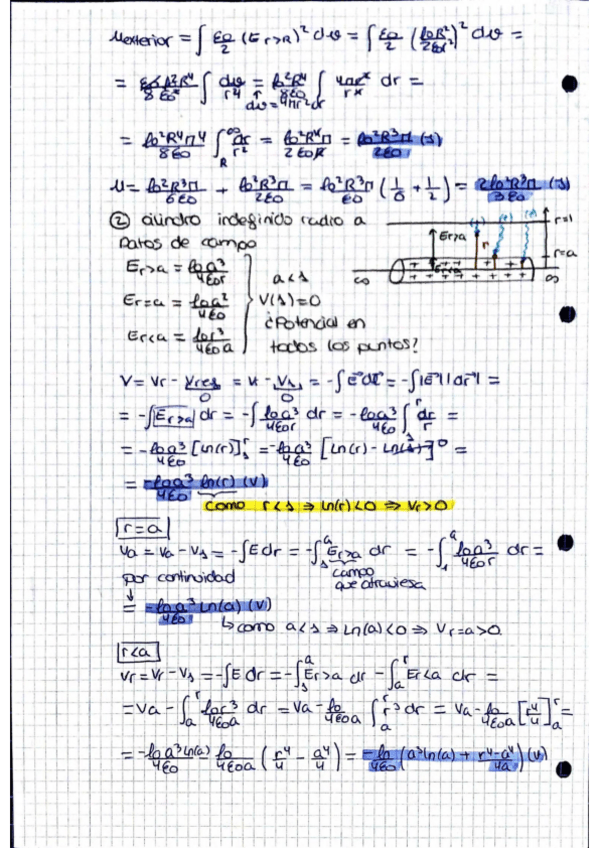 Uexterior = ∫ ε0/2 (E r>R)² dv = ∫ ε0/2 (ρ0R²/2ε0r²)² dv =
= ε0 ρ0²R⁴/8 ε0² ∫ dv/r⁴ = ρ0²R⁴/8ε0 ∫ 4πr²/r⁴ dr =
dv=4πr²dr
= ρ0²R⁴π4/8ε0 ∫_R^∞ dr/r² = ρ0²R⁴π/2ε0R = ρ0²R³π/2ε0 (J)
U = ρ0²R³π/6ε0 + ρ0²R³π/2ε0 = ρ0²R³π/ε0 (1/6 + 1/2) = 2ρ0²R³π/3ε0 (J)
② cilindro indefinido radio a
Datos de campo
Er>a = ρ0a³/4ε0r
Er=a = ρ0a²/4ε0
Er<a = ρ0r³/4ε0a
a<1
V(1)=0
¿Potencial en
todos los puntos?
Er>a
r
r=1
r=a
∞ + + + + + ∞
V = Vr - Vref = Vr - V1 = -∫E dr = -∫|E||dr| =
0 0
= -∫Er>a dr = -∫ρ0a³/4ε0r dr = -ρ0a³/4ε0 ∫_1^r dr/r =
= -ρ0a³/4ε0 [Ln(r)]_1^r = -ρ0a³/4ε0 [Ln(r) - Ln(1)]⁰ =
= -ρ0a³/4ε0 ln(r) (V)
como r<1 ⇒ Ln(r)<0 ⇒ Vr>0
r=a
Va = Va - V1 = -∫E dr = -∫_1^a Er>a dr = -∫_1^a ρ0a³/4ε0r dr =
por continuidad campo
que atraviesa
= -ρ0a³/4ε0 Ln(a) (V)
↳ como a<1 ⇒ Ln(a)<0 ⇒ Vr=a>0
r<a
Vr = Vr - V1 = -∫E dr = -∫_1^a Er>a dr - ∫_a^r Er<a dr =
= Va - ∫_a^r ρ0r³/4ε0a dr = Va - ρ0/4ε0a ∫_a^r r³ dr = Va - ρ0/4ε0a [r⁴/4]_a^r =
= -ρ0a³ln(a)/4ε0 - ρ0/4ε0a (r⁴/4 - a⁴/4) = -ρ0/4ε0 (a³ln(a) + r⁴-a⁴/4a) (V)